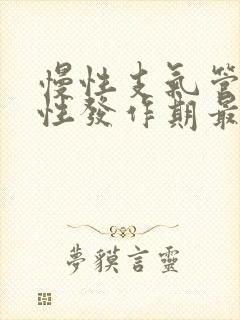 慢性支氣管
性發作期最
夢貘言靈